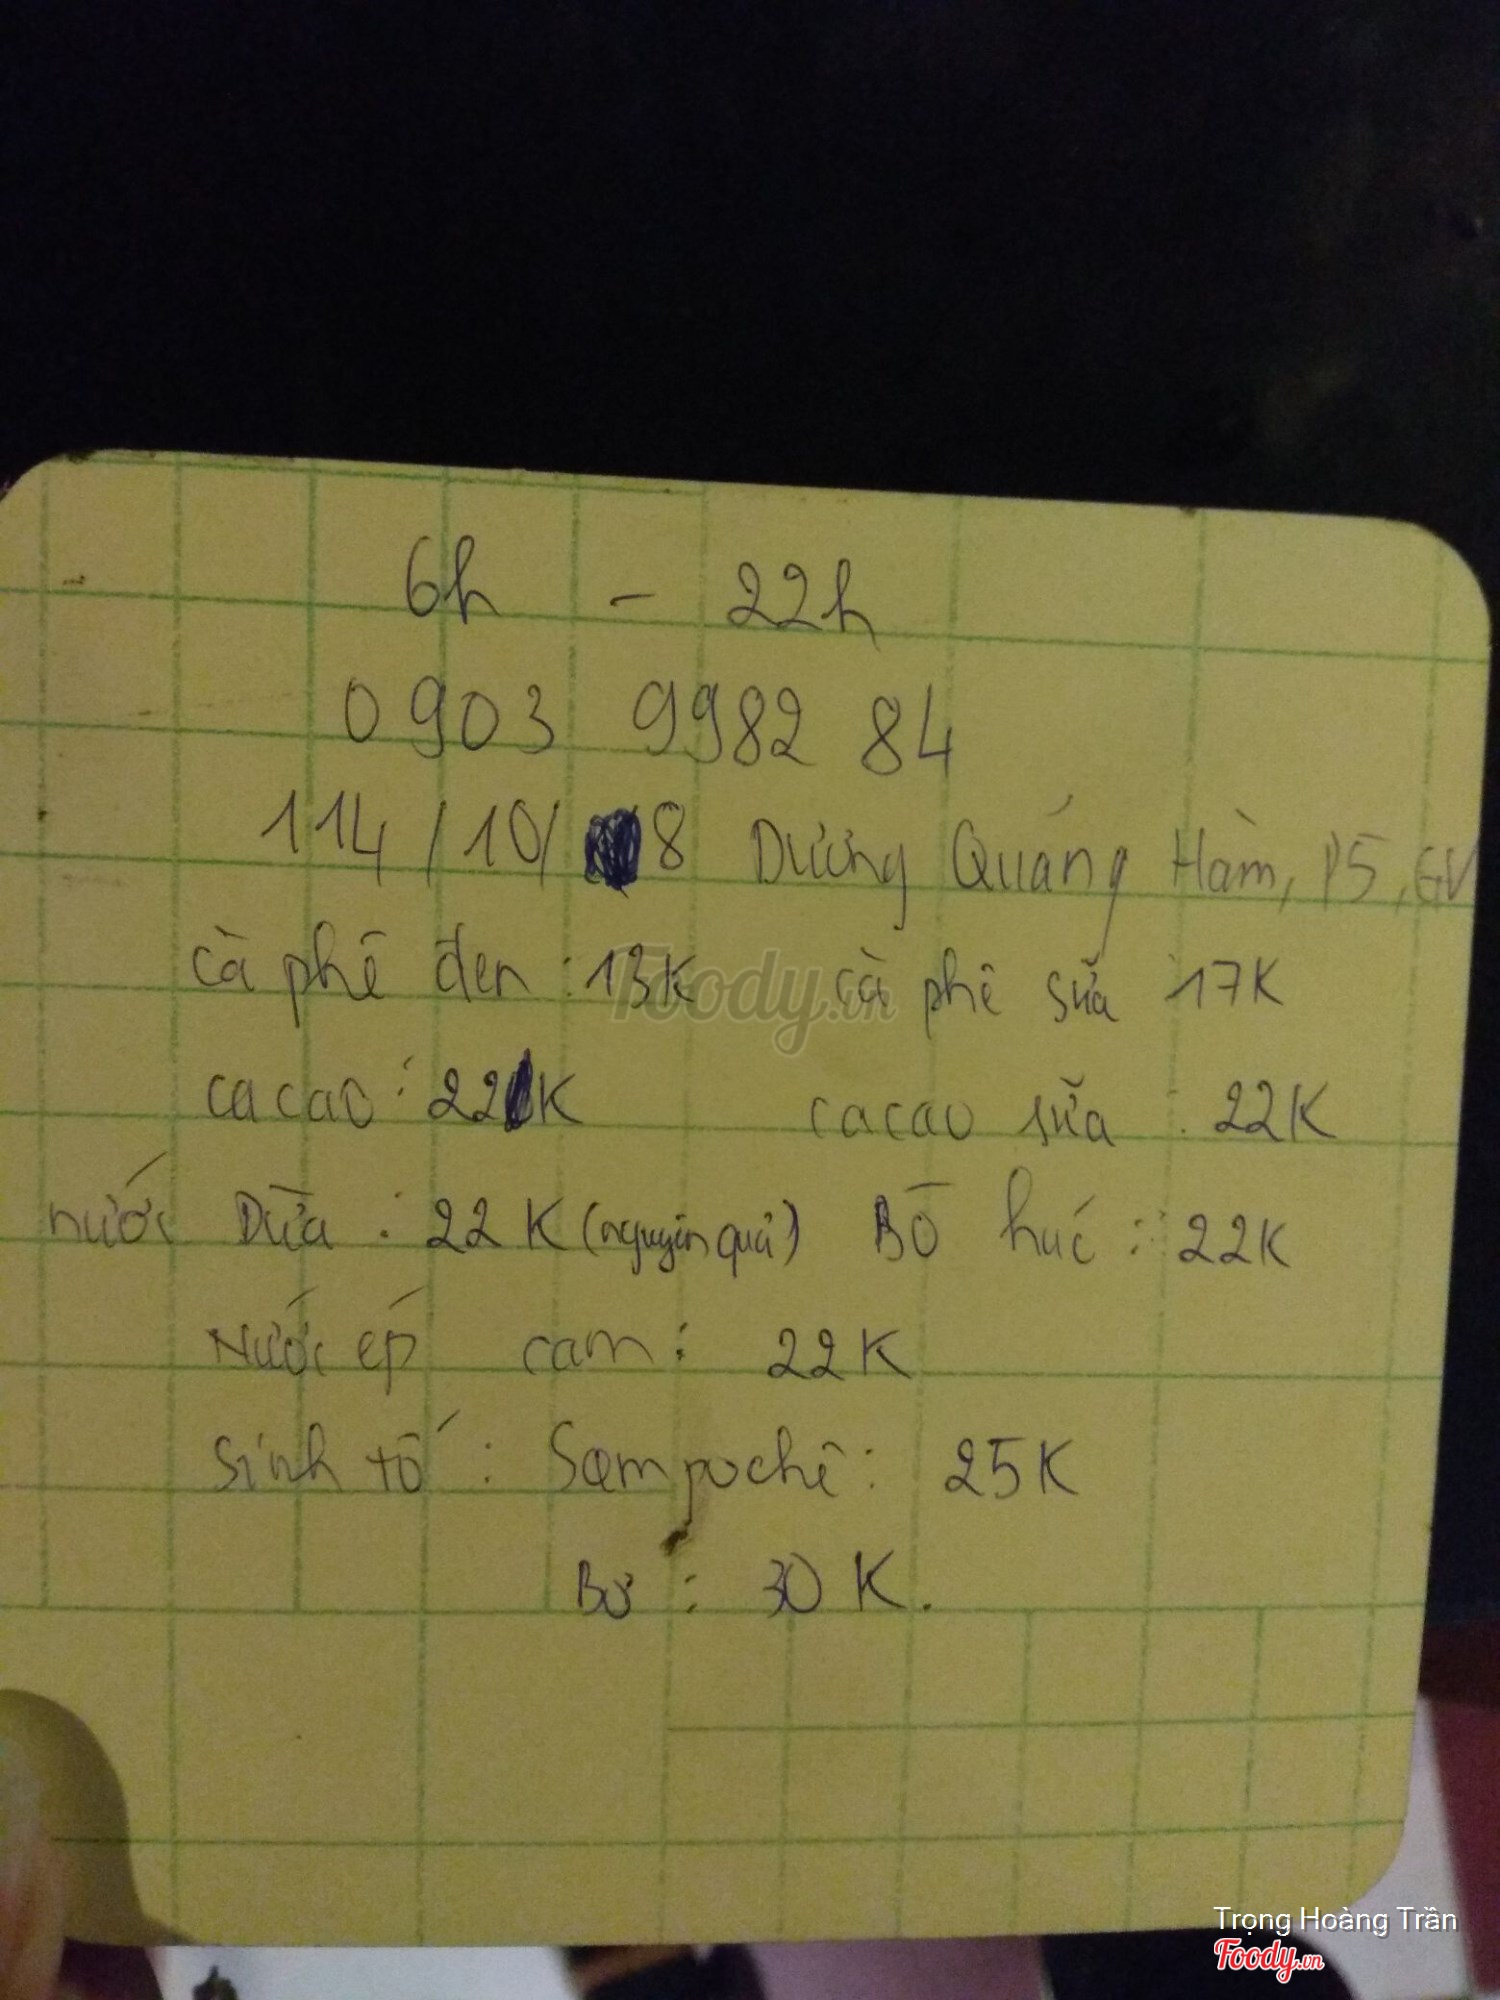 6h - 22h
0903 9982 84
114/10/ 8 Dương Quảng Hàm, P5, GV
cà phê đen : 13K cà phê sữa 17K
cacao : 22K cacao sữa : 22K
nước Dừa : 22K (nguyên quả) Bò húc : 22K
Nước ép cam : 22K
Sinh tố : Sampochê : 25K
Bơ : 30K.
Foody.vn
Trọng Hoàng Trần
Foody.vn